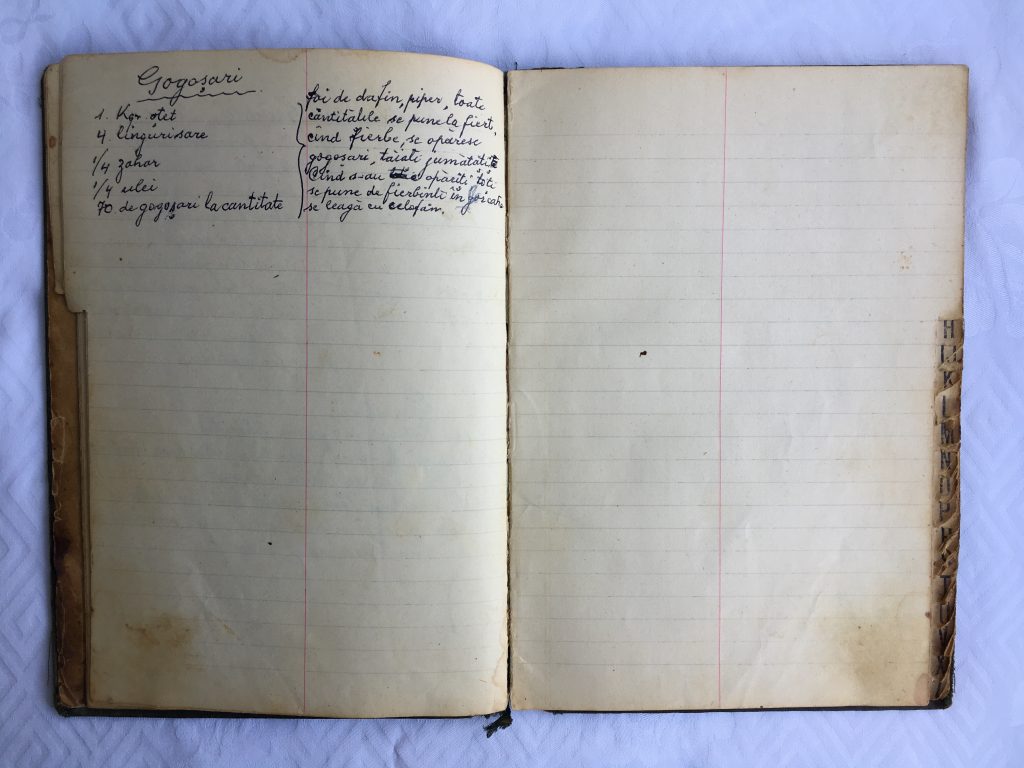 Gogoșari
1. Kgr oțet
4. linguri sare
1/4 zahar
1/4 ulei
70 de gogoșari la cantitate
foi de dafin, piper, toate
cantitătile se pune la fiert,
cînd fierbe, se opăresc
gogoșari, tăiați jumatăți
Cînd s-au opăriți toți
se pune de fierbinti în
se leagă cu celofan.
H
I
K
M
N
P
T
U